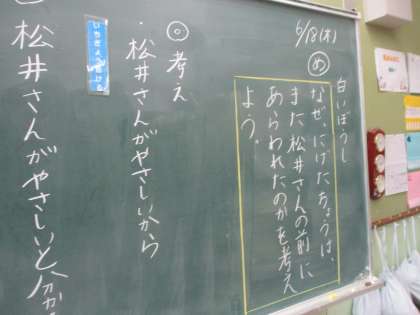 6/18(木)
め
白いぼうし
なぜ、にげたちょうは、
また松井さんの前に
あらわれたのかを考え
よう。
◎考え
・松井さんがやさしいから
松井さんがやさしいと分かる